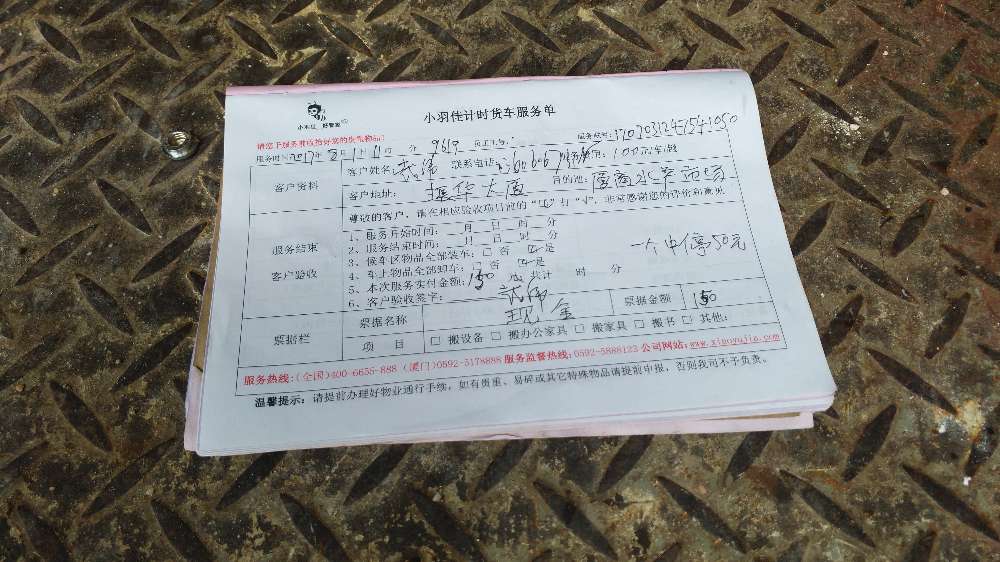 小羽佳计时货车服务单
小羽佳 好管家
服务时间2017年8月1日 分 9617 员工工号: 服务单号:
客户资料
客户姓名: 联系电话: 100元车/趟
客户地址: 振华大厦 目的地: 夏商水产市场
服务结束
客户验收
尊敬的客户,请在相应验收项目前的
1、服务开始时间: 月 日 时 分
2、服务结束时间: 月 日 时 分
3、候车区物品全部装车: □ 否 ☑ 是
4、车上物品全部卸车: □ 否 ☑ 是
5、本次服务实付金额: 150 元 共计 时 分
6、客户验收签字:
一个中停50元
票据栏
票据名称 现金 票据金额 150
项 目 □ 搬设备 □ 搬办公家具 □ 搬家具 □ 搬书 □ 其他:
服务热线:(全国)400-6655-888 (厦门)0592-5178888 服务监督热线:0592-5888123 公司网站:www.xiaoyujia.com
温馨提示: 请提前办理好物业通行手续,如有贵重、易碎或其它特殊物品请提前申报,否则我司不予负责。